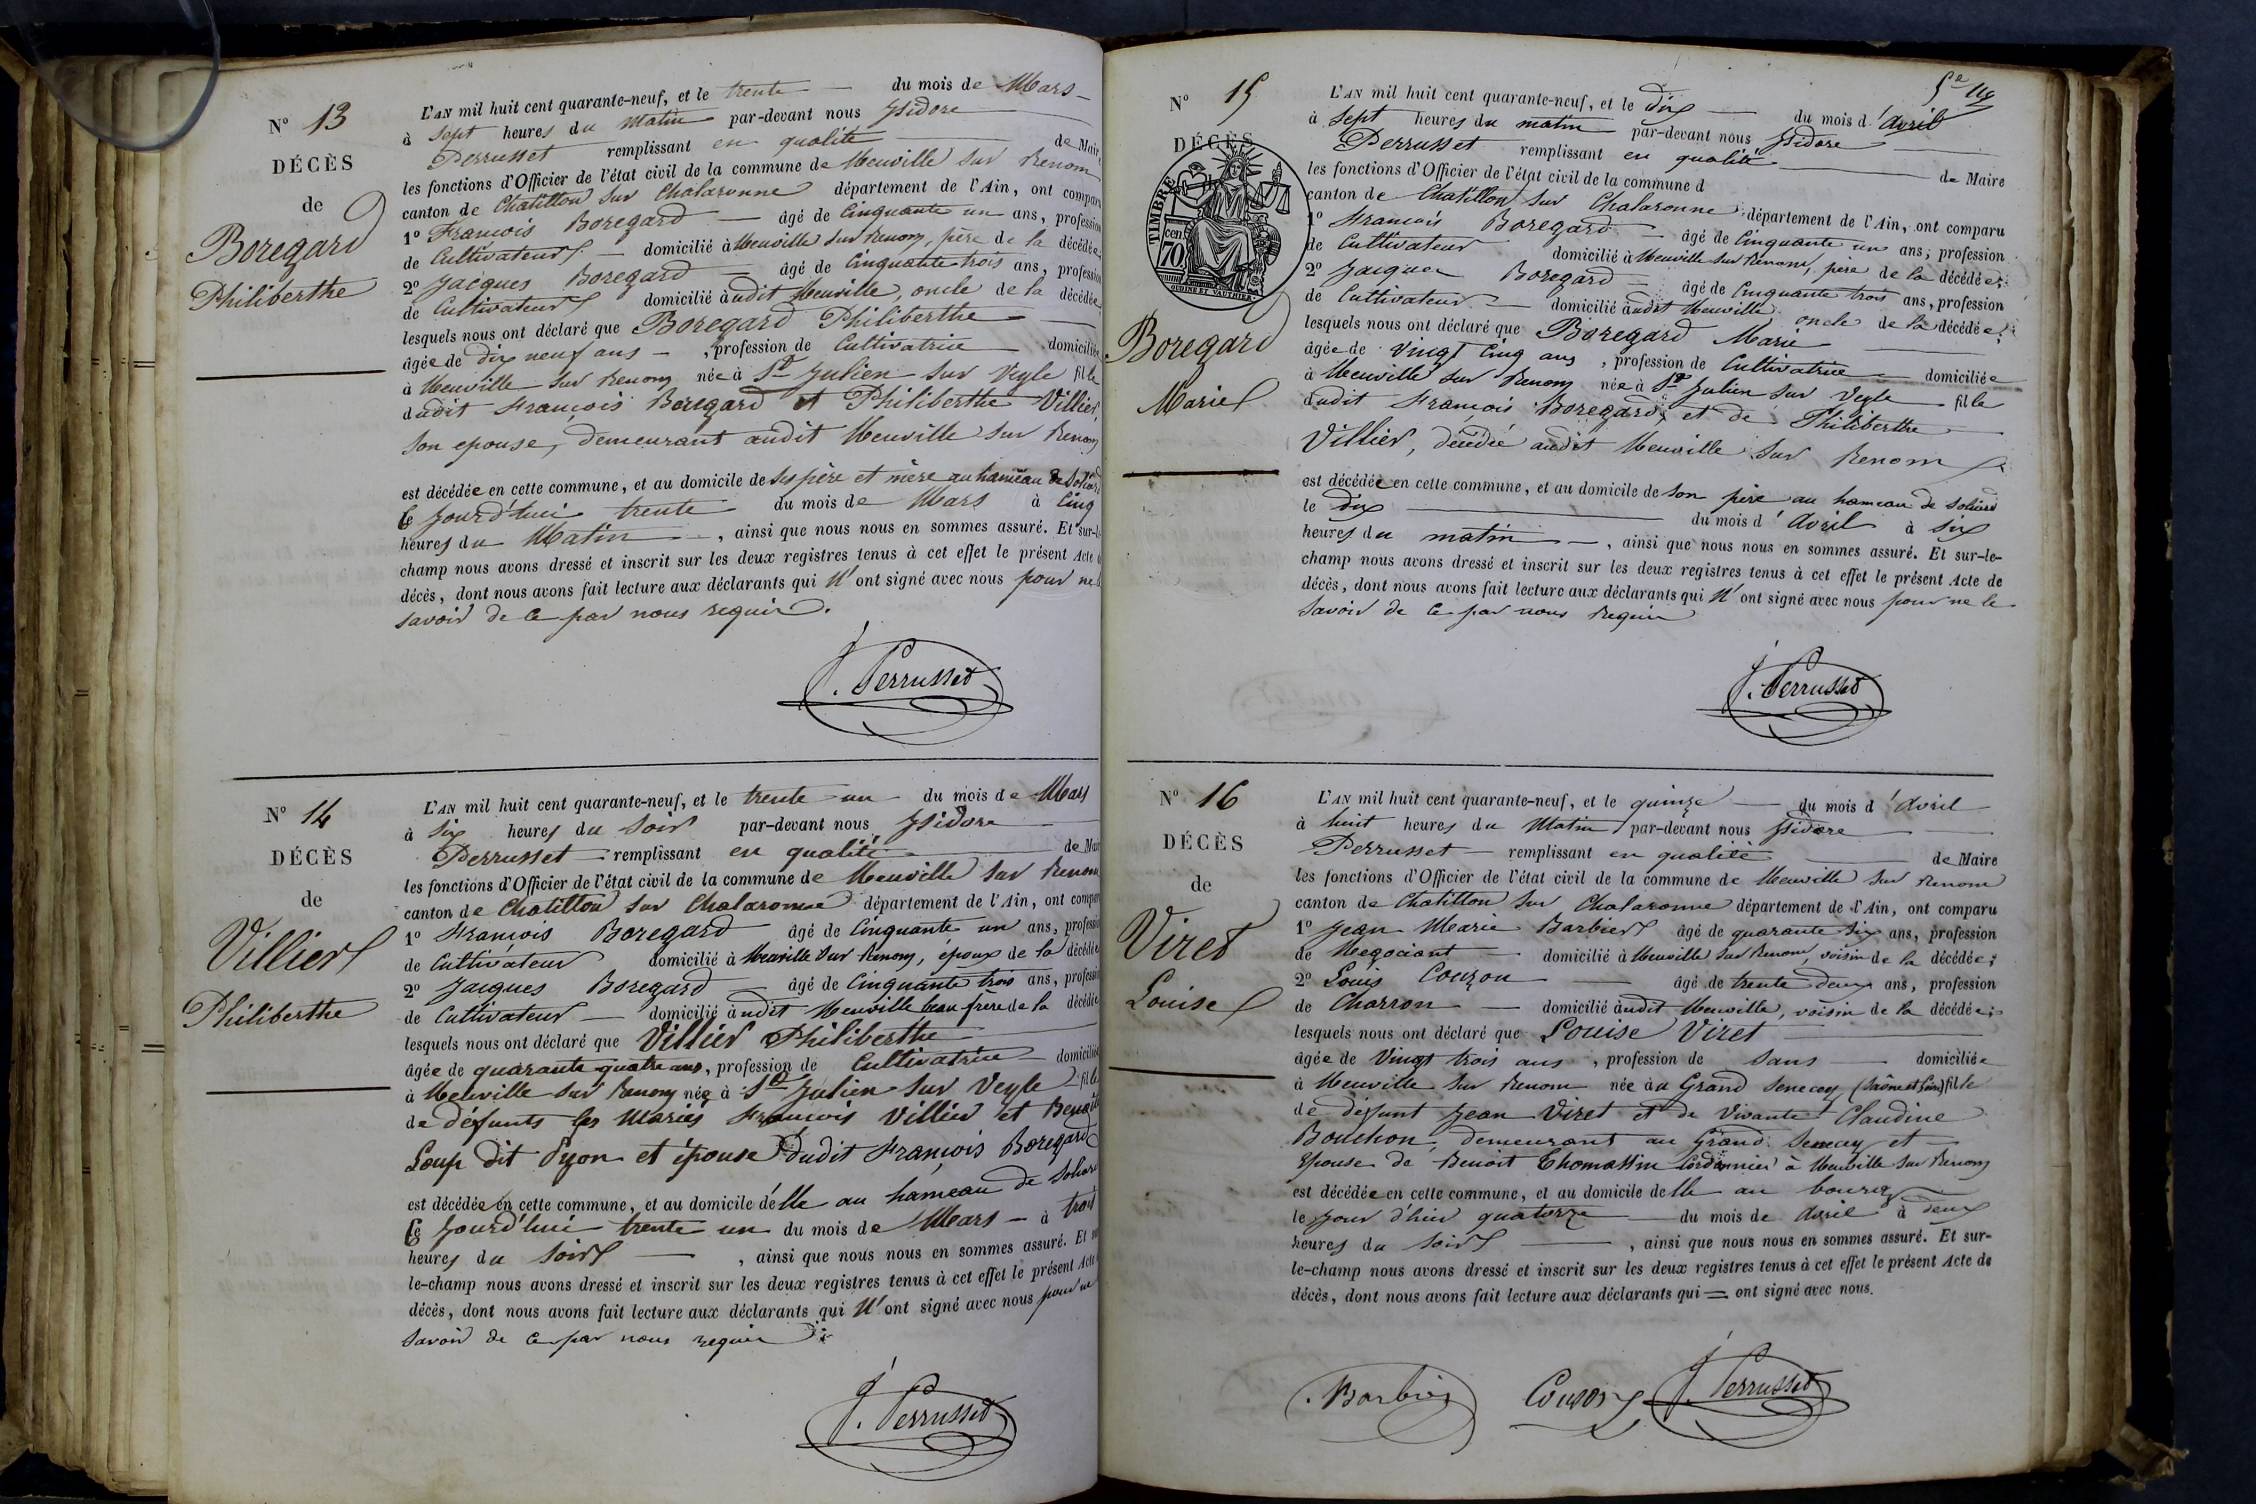 Nº 13
DÉCÈS
de
Boregard
Philiberthe
L'AN mil huit cent quarante-neuf, et le trente — du mois de Mars —
à Sept heures du Matin par-devant nous Isidore
Perrusset remplissant en qualité de Maire
les fonctions d'Officier de l'état civil de la commune de Neuville sur Renom
canton de Chatillon sur Chalaronne département de l'Ain, ont comparu
1º François Boregard — âgé de Cinquante un ans, profession
de Cultivateur — domicilié à Neuville sur Renom, père de la décédée
2º Jacques Boregard — âgé de Cinquante trois ans, profession
de Cultivateur domicilié audit Neuville, oncle de la décédée
lesquels nous ont déclaré que Boregard Philiberthe —
âgée de dix neuf ans —, profession de Cultivatrice domiciliée
à Neuville sur Renom née à St Julien sur Veyle fille
dudit François Boregard et Philiberthe Villier,
son epouse, demeurant audit Neuville sur Renom
est décédée en cette commune, et au domicile de ses père et mère au hameau de Soliard
le jourd'hui trente du mois de Mars à Cinq
heures du Matin —, ainsi que nous nous en sommes assuré. Et sur-le-
champ nous avons dressé et inscrit sur les deux registres tenus à cet effet le présent Acte de
décès, dont nous avons fait lecture aux déclarants qui n'ont signé avec nous pour ne le
savoir de ce par nous requis.
J. Perrusset
Nº 14
DÉCÈS
de
Villier
Philiberthe
L'AN mil huit cent quarante-neuf, et le trente un du mois de Mars
à six heures du soir par-devant nous Isidore
Perrusset — remplissant en qualité de Maire
les fonctions d'Officier de l'état civil de la commune de Neuville sur Renom
canton de Chatillon sur Chalaronne département de l'Ain, ont comparu
1º François Boregard âgé de Cinquante un ans, profession
de Cultivateur domicilié à Neuville sur Renom, époux de la décédée
2º Jacques Boregard — âgé de Cinquante trois ans, profession
de Cultivateur — domicilié audit Neuville beau frère de la décédée
lesquels nous ont déclaré que Villier Philiberthe
âgée de quarante quatre ans, profession de Cultivatrice domiciliée
à Neuville sur Renom née à St Julien sur Veyle fille
de défunts les Mariés François Villier et Benoite
Loup dit Pyon et épouse dudit François Boregard
est décédée en cette commune, et au domicile d'elle au hameau de Soliard
le jourd'hui trente un du mois de Mars — à trois
heures du soir —, ainsi que nous nous en sommes assuré. Et sur-
le-champ nous avons dressé et inscrit sur les deux registres tenus à cet effet le présent Acte de
décès, dont nous avons fait lecture aux déclarants qui n'ont signé avec nous pour ne
savoir de ce par nous requis
J. Perrusset
Nº 15
DÉCÈS
TIMBRE
70 cen
OUDINÉ ET VAUTHIER
Boregard
Marie
L'AN mil huit cent quarante-neuf, et le dix — du mois d'Avril
à sept heures du matin par-devant nous Isidore
Perrusset remplissant en qualité — de Maire
les fonctions d'Officier de l'état civil de la commune d
canton de Chatillon sur Chalaronne département de l'Ain, ont comparu
1º François Boregard — âgé de Cinquante un ans, profession
de Cultivateur domicilié à Neuville sur Renom, père de la décédée;
2º Jacques Boregard — âgé de Cinquante trois ans, profession
de Cultivateur — domicilié audit Neuville oncle de la décédée;
lesquels nous ont déclaré que Boregard Marie
âgée de vingt Cinq ans, profession de Cultivatrice domiciliée
à Neuville sur Renom née à St Julien sur Veyle fille
dudit François Boregard, et de Philiberthe
Villier, décédée audit Neuville sur Renom
est décédée en cette commune, et au domicile de son père au hameau de Soliard
le dix — du mois d'Avril à six
heures du matin —, ainsi que nous nous en sommes assuré. Et sur-le-
champ nous avons dressé et inscrit sur les deux registres tenus à cet effet le présent Acte de
décès, dont nous avons fait lecture aux déclarants qui n'ont signé avec nous pour ne le
savoir de ce par nous requis
J. Perrusset
Nº 16
DÉCÈS
de
Viret
Louise
L'AN mil huit cent quarante-neuf, et le quinze — du mois d'Avril
à huit heures du Matin par-devant nous Isidore
Perrusset — remplissant en qualité — de Maire
les fonctions d'Officier de l'état civil de la commune de Neuville sur Renom
canton de Chatillon sur Chalaronne département de l'Ain, ont comparu
1º Jean Marie Barbier âgé de quarante six ans, profession
de Negociant — domicilié à Neuville sur Renom, voisin de la décédée;
2º Louis Couzon — âgé de trente deux ans, profession
de Charron — domicilié audit Neuville, voisin de la décédée;
lesquels nous ont déclaré que Louise Viret
âgée de Vingt trois ans, profession de sans — domiciliée
à Neuville sur Renom née au Grand Senecey (Saône et Loire) fille
de défunt Jean Viret et de Vivante Claudine
Bouchon demeurant au Grand Senecey et —
Epouse de Benoit Thomassin Cordonnier à Neuville sur Renom
est décédée en cette commune, et au domicile d'elle au bourg
le jour d'hier quatorze — du mois de Avril à deux
heures du soir —, ainsi que nous nous en sommes assuré. Et sur-
le-champ nous avons dressé et inscrit sur les deux registres tenus à cet effet le présent Acte de
décès, dont nous avons fait lecture aux déclarants qui = ont signé avec nous.
Barbier Couzon J. Perrusset